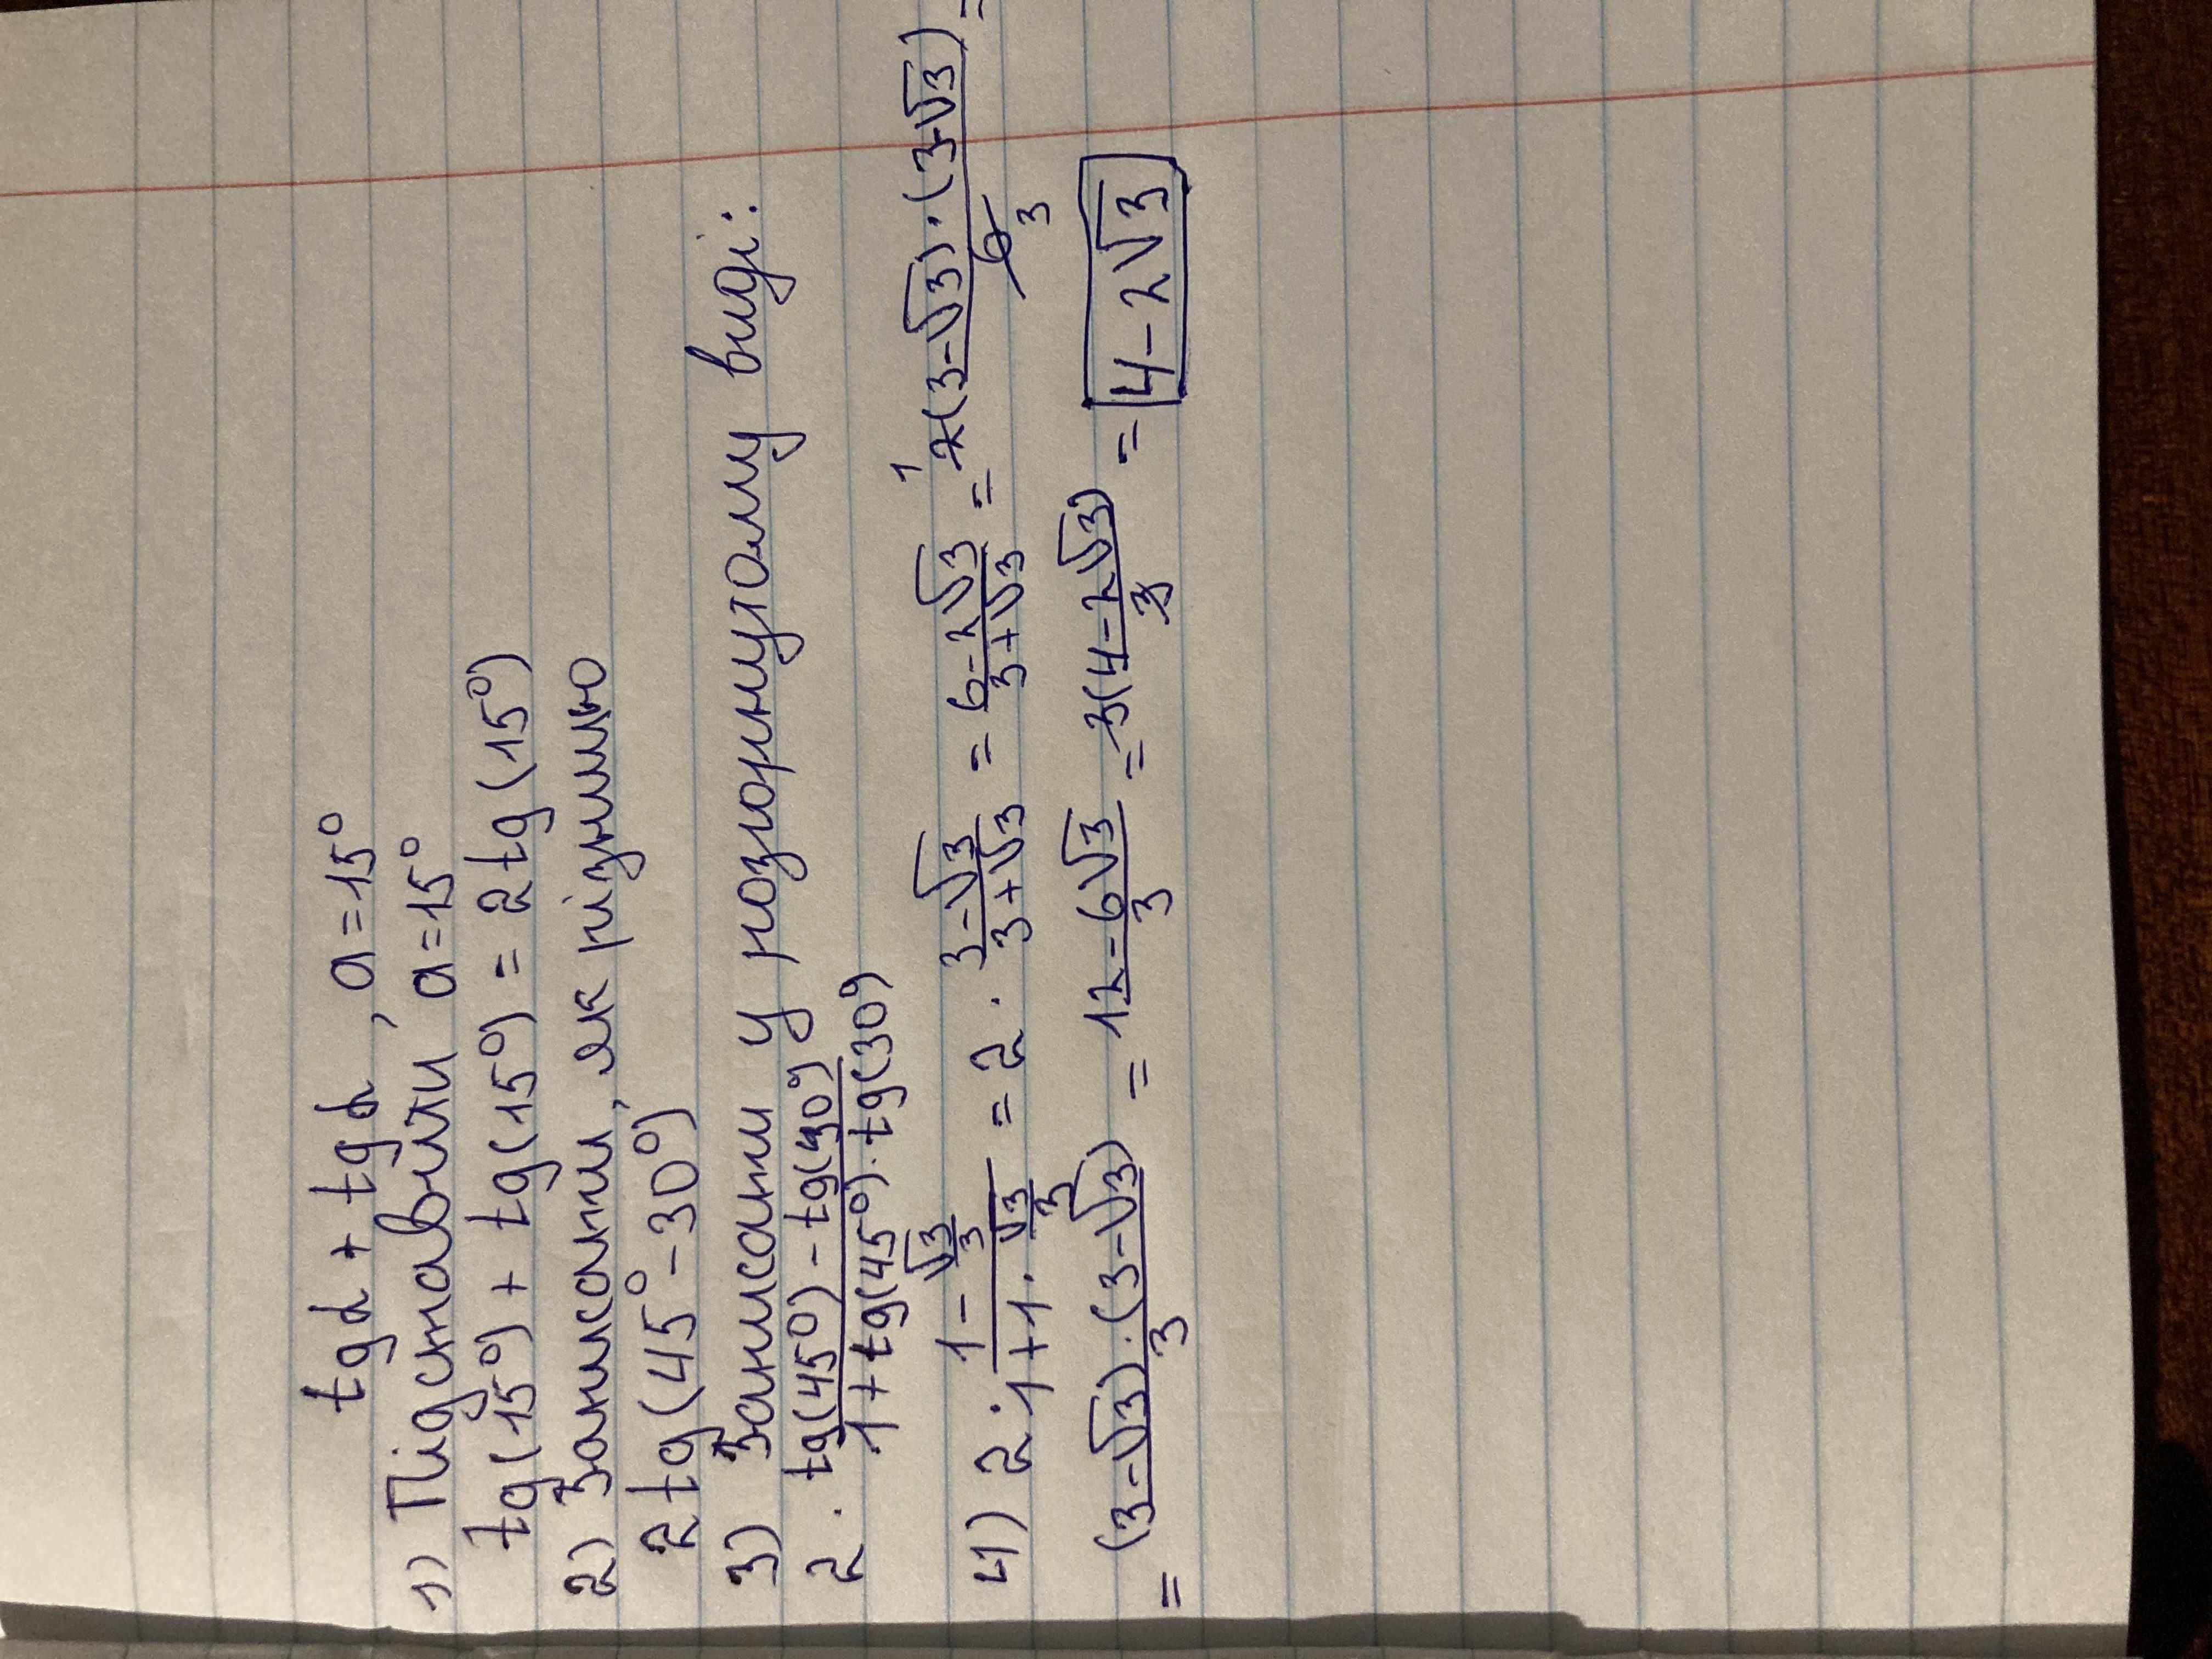 tgα + tgα, a=15°
1) Підставили, a=15°
tg(15°) + tg(15°) = 2tg(15°)
2) Записати, як різницю
2tg(45°-30°)
3) Записати у розгорнутому виді:
2 · (tg(45°) - tg(30°))/(1 + tg(45°) · tg(30°))
4) 2 · (1 - √3/3)/(1 + 1 · √3/3) = 2 · (3-√3)/(3+√3) = (6-2√3)/(3+√3) = 2(3-√3)·(3-√3)/6 =
= (3-√3)·(3-√3)/3 = (12-6√3)/3 = 3(4-2√3)/3 = 4-2√3